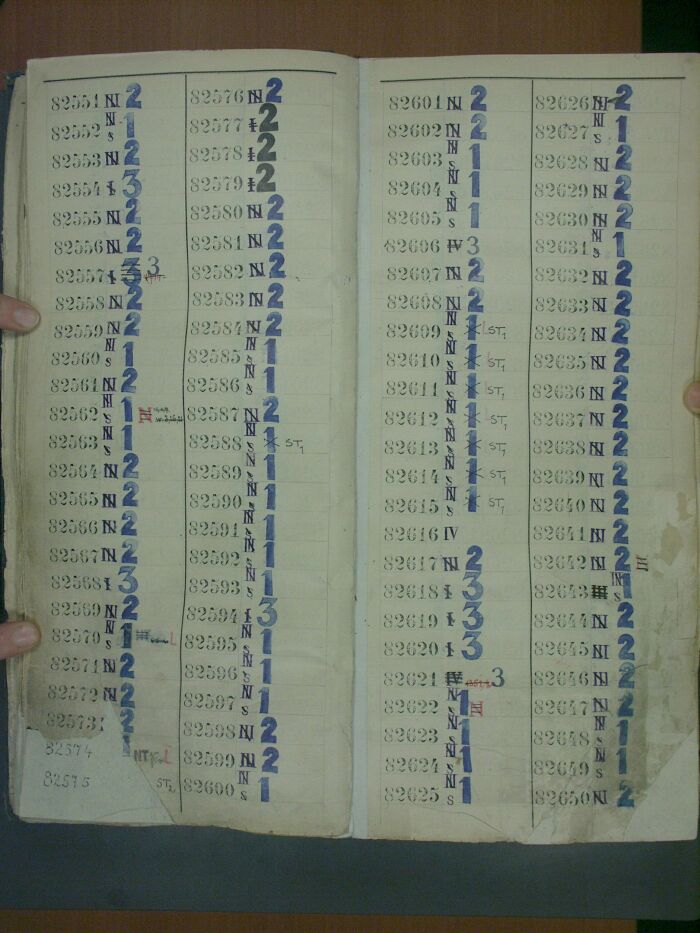 82551 NI 2
82552 N S 1
82553 NI 2
82554 I 3
82555 NI 2
82556 NI 2
82557 I 3 3
82558 NI 2
82559 NI 2
82560 N S 1
82561 NI 2
82562 N S 1 III
82563 N S 1
82564 NI 2
82565 NI 2
82566 NI 2
82567 NI 2
82568 I 3
82569 NI 2
82570 N S 1 L
82571 NI 2
82572 NI 2
82573 2
82574 1 NT L
82575 ST2
82576 NI 2
82577 I 2
82578 I 2
82579 I 2
82580 NI 2
82581 NI 2
82582 NI 2
82583 NI 2
82584 NI 2
82585 N S 1
82586 N S 1
82587 NI 2
82588 N S 1 ST1
82589 N S 1
82590 N S 1
82591 N S 1
82592 N S 1
82593 N S 1
82594 I 3
82595 N S 1
82596 N S 1
82597 N S 1
82598 NI 2
82599 NI 2
82600 N S 1
82601 NI 2
82602 NI 2
82603 N S 1
82604 N S 1
82605 N S 1
82606 IV 3
82607 NI 2
82608 NI 2
82609 N S 1 ST1
82610 N S 1 ST1
82611 N S 1 ST1
82612 N S 1 ST1
82613 N S 1 ST1
82614 N S 1 ST1
82615 N S 1 ST1
82616 IV
82617 NI 2
82618 I 3
82619 I 3
82620 I 3
82621 IV 3
82622 N S 1 III
82623 N S 1
82624 N S 1
82625 N S 1
82626 NI 2
82627 N S 1
82628 NI 2
82629 NI 2
82630 NI 2
82631 N S 1
82632 NI 2
82633 NI 2
82634 NI 2
82635 NI 2
82636 NI 2
82637 NI 2
82638 NI 2
82639 NI 2
82640 NI 2
82641 NI 2
82642 NI 2 III
82643 III N S 1
82644 NI 2
82645 NI 2
82646 NI 2
82647 NI 2
82648 N S 1
82649 N S 1
82650 NI 2